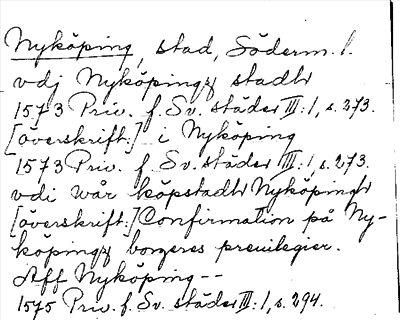 Nyköping, stad, Söderm. l.
vdj Nyköpingz stadh
1573 Priv. f. Sv. städer III:1, s. 273.
[överskrift:] i Nyköping
1573 Priv. f. Sv. städer III:1, s. 273.
vdi wår köpstadh Nyköpingh
[överskrift:] Confirmation på Ny-
köpingz borgeres preuilegier.
Aff Nyköping --
1575 Priv. f. Sv. städer III:1, s. 294.